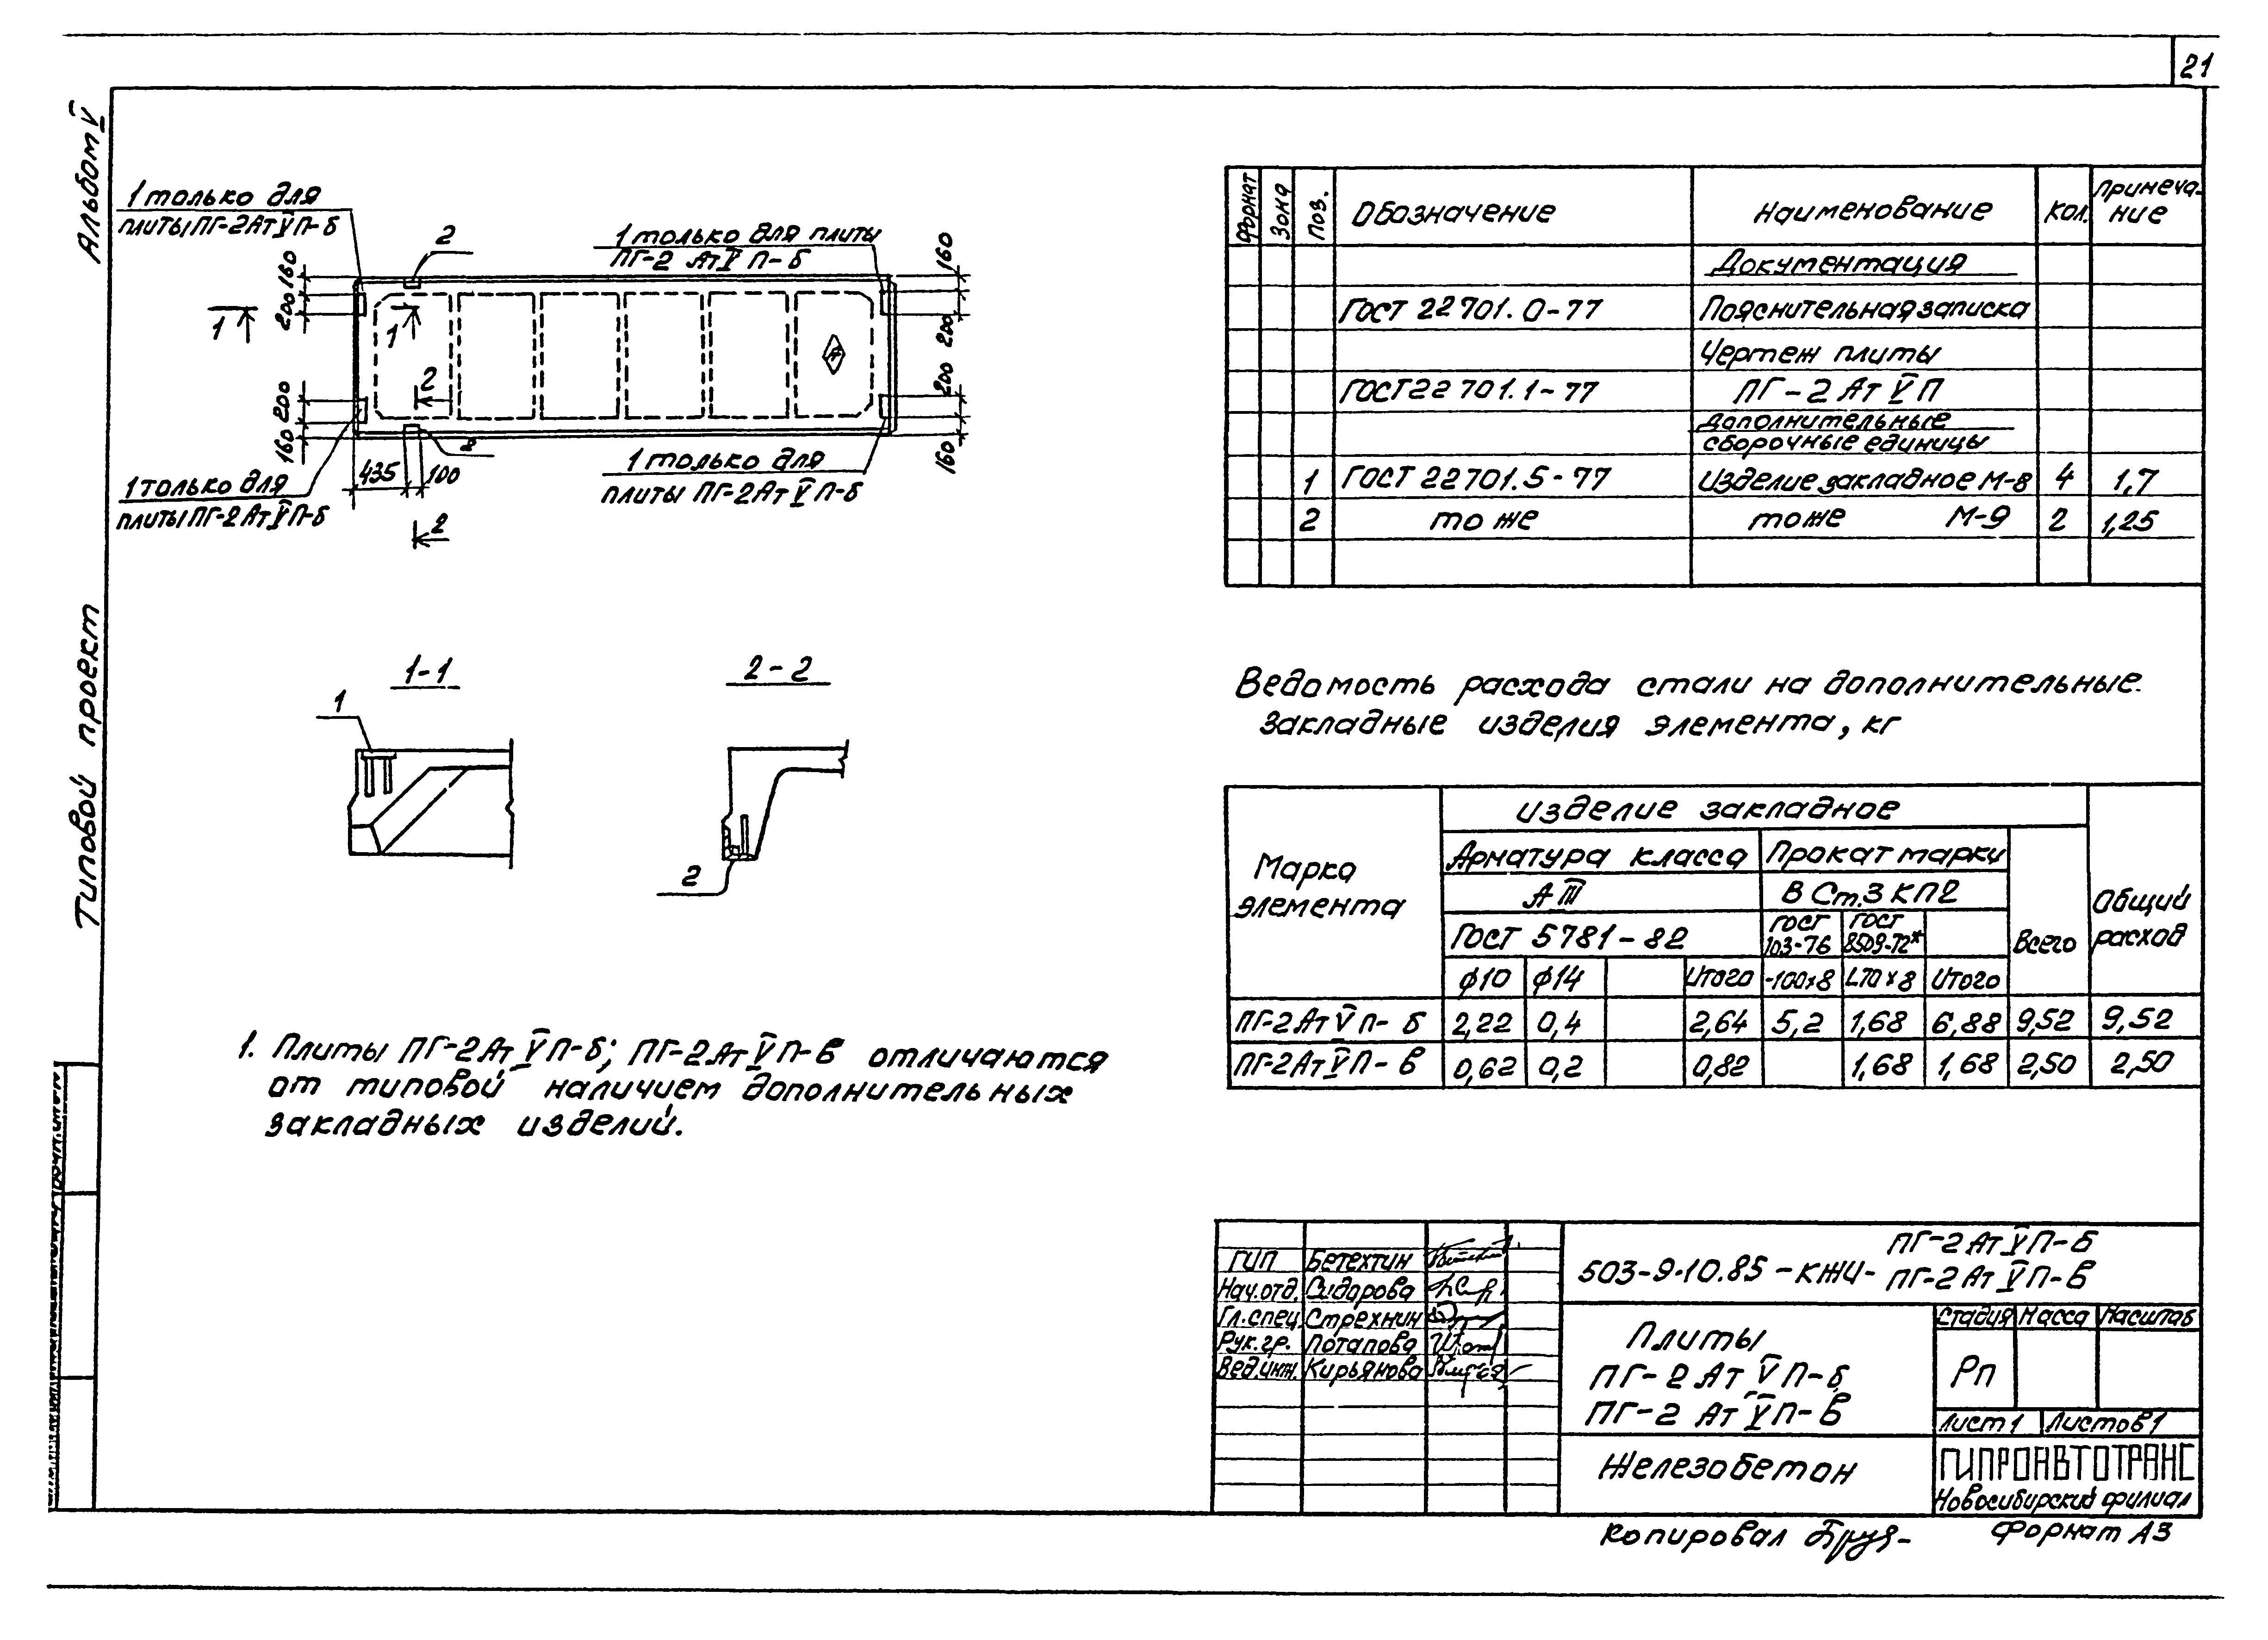 21
Альбом V
Типовой проект
1 только для
плиты ПГ-2АтVП-б
2
1 только для плиты
ПГ-2 АтV П-б
160
200
200
160
160
200
200
160
1
1
2
2
2
435
100
1 только для
плиты ПГ-2АтVП-б
1 только для
плиты ПГ-2АтVП-б
1-1
1
2-2
2
1. Плиты ПГ-2АтVП-б; ПГ-2АтVП-в отличаются
от типовой наличием дополнительных
закладных изделий.
Формат Зона Поз. Обозначение Наименование Кол. Примеча-
ние
Документация
ГОСТ 22701.0-77 Пояснительная записка
Чертеж плиты
ГОСТ 22701.1-77 ПГ-2АтVП
дополнительные
сборочные единицы
1 ГОСТ 22701.5-77 Изделие закладное М-8 4 1,7
2 то же то же М-9 2 1,25
Ведомость расхода стали на дополнительные
закладные изделия элемента, кг
Марка
элемента
изделие закладное
Арматура класса Прокат марки
А III В Ст.3 КП2
ГОСТ 5781-82 ГОСТ
103-76 ГОСТ
8509-72*
Всего
Общий
расход
ϕ10 ϕ14 Итого -100х8 L70х8 Итого
ПГ-2АтVП-б 2,22 0,4 2,64 5,2 1,68 6,88 9,52 9,52
ПГ-2АтVП-в 0,62 0,2 0,82 1,68 1,68 2,50 2,50
ГИП Бетехтин
Нач.отд. Сидорова
Гл.спец. Стрехнин
Рук.гр. Потапова
Вед.инж. Кирьянова
503-9-10.85-КЖИ- ПГ-2АтVП-б
ПГ-2АтVП-в
Плиты
ПГ-2АтVП-б
ПГ-2АтVП-в
Стадия Масса Масштаб
Рп
Лист 1 Листов 1
Железобетон
ГИПРОАВТОТРАНС
Новосибирский филиал
Копировал
Формат А3